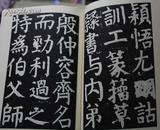 穎悟尤詁
訓工篆籀草
隸書與内弟
殷仲容齊名
而勁利過之
特為伯父師